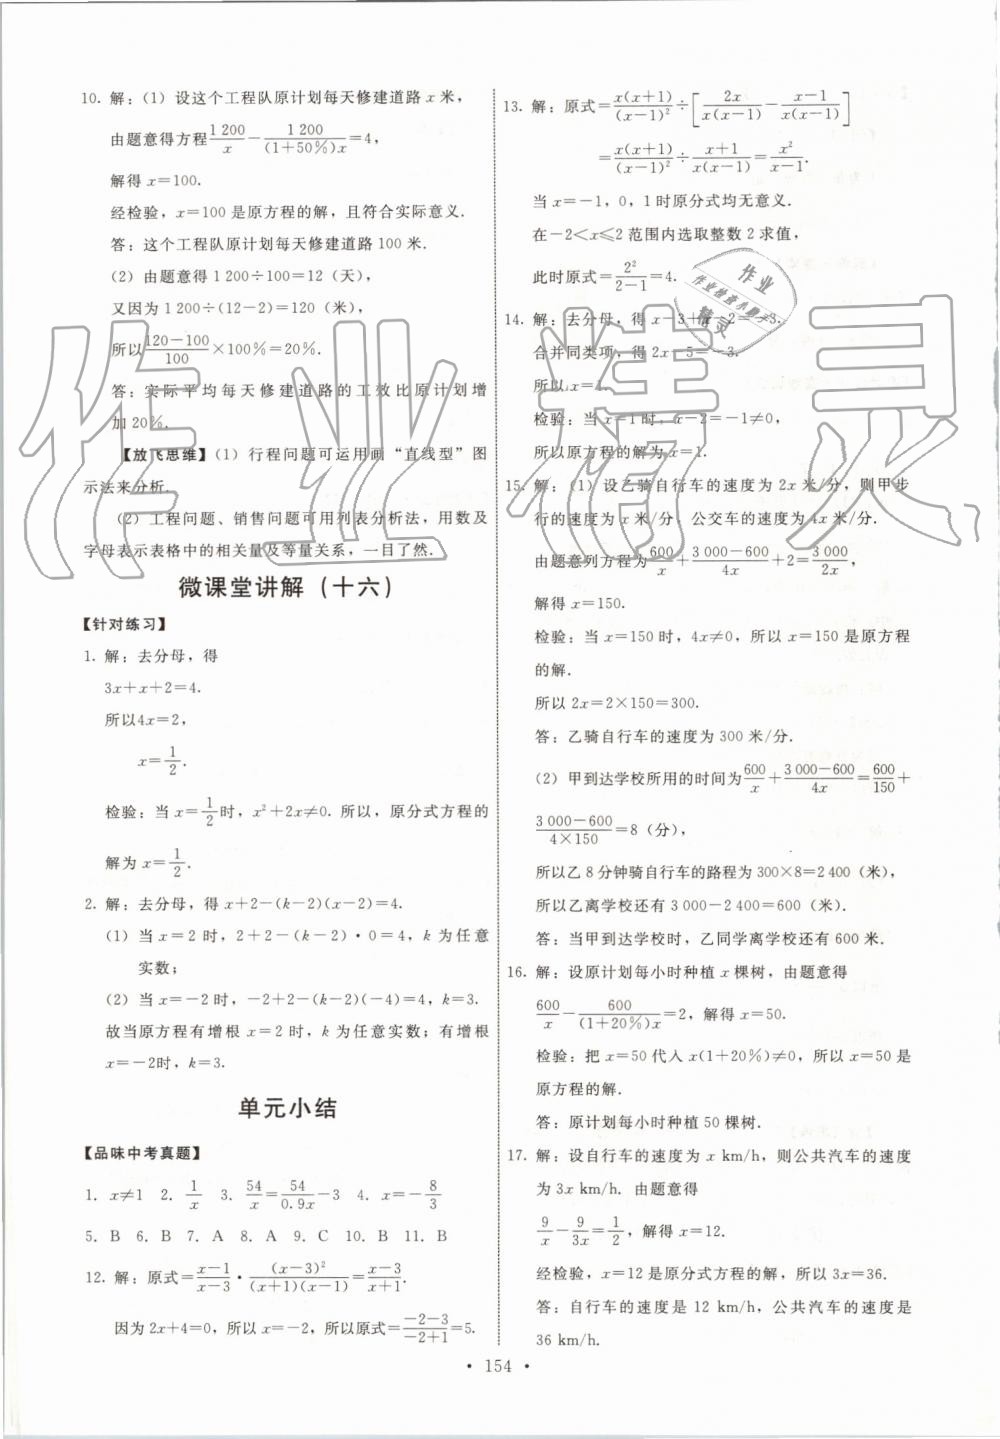 10. 解:(1) 设这个工程队原计划每天修建道路 x 米,
由题意得方程 1 200/x − 1 200/((1+50%)x) = 4,
解得 x=100.
经检验, x=100 是原方程的解, 且符合实际意义.
答: 这个工程队原计划每天修建道路 100 米.
(2) 由题意得 1 200÷100=12 (天),
又因为 1 200÷(12−2)=120 (米),
所以 (120−100)/100 ×100%=20%.
答: 实际平均每天修建道路的工效比原计划增
加 20%.
【放飞思维】(1) 行程问题可运用画“直线型”图
示法来分析.
(2) 工程问题、销售问题可用列表分析法, 用数及
字母表示表格中的相关量及等量关系, 一目了然.
微课堂讲解 (十六)
【针对练习】
1. 解: 去分母, 得
3x+x+2=4.
所以4x=2,
x=1/2.
检验: 当 x=1/2 时, x²+2x≠0. 所以, 原分式方程的
解为 x=1/2.
2. 解: 去分母, 得 x+2−(k−2)(x−2)=4.
(1) 当 x=2 时, 2+2−(k−2)·0=4, k 为任意
实数;
(2) 当 x=−2 时, −2+2−(k−2)(−4)=4, k=3.
故当原方程有增根 x=2 时, k 为任意实数; 有增根
x=−2时, k=3.
单元小结
【品味中考真题】
1. x≠1 2. 1/x 3. 54/x=54/0.9x−3 4. x=−8/3
5. B 6. B 7. A 8. A 9. C 10. B 11. B
12. 解: 原式=(x−1)/(x−3)·(x−3)²/((x+1)(x−1))=(x−3)/(x+1).
因为 2x+4=0, 所以 x=−2, 所以原式=(−2−3)/(−2+1)=5.
13. 解: 原式=x(x+1)/(x−1)²÷[2x/(x(x−1))−(x−1)/(x(x−1))]
=x(x+1)/(x−1)²÷(x+1)/(x(x−1))=x²/(x−1).
当 x=−1, 0, 1 时原分式均无意义.
在−2<x≤2 范围内选取整数 2 求值,
此时原式=2²/(2−1)=4.
14. 解: 去分母, 得 x−3+x−2=−3.
合并同类项, 得 2x−5=−3.
所以 x=1.
检验: 当 x=1 时, x−2=−1≠0,
所以原方程的解为 x=1.
15. 解: (1) 设乙骑自行车的速度为 2x 米/分, 则甲步
行的速度为 x 米/分, 公交车的速度为 4x 米/分.
由题意列方程为 600/x+(3 000−600)/4x+2=3 000/2x,
解得 x=150.
检验: 当 x=150 时, 4x≠0, 所以 x=150 是原方程
的解.
所以 2x=2×150=300.
答: 乙骑自行车的速度为 300 米/分.
(2) 甲到达学校所用的时间为 600/x+(3 000−600)/4x=600/150+
(3 000−600)/(4×150)=8 (分),
所以乙 8 分钟骑自行车的路程为 300×8=2 400 (米),
所以乙离学校还有 3 000−2 400=600 (米).
答: 当甲到达学校时, 乙同学离学校还有 600 米.
16. 解: 设原计划每小时种植 x 棵树, 由题意得
600/x−600/((1+20%)x)=2, 解得 x=50.
检验: 把 x=50 代入 x(1+20%)≠0, 所以 x=50 是
原方程的解.
答: 原计划每小时种植 50 棵树.
17. 解: 设自行车的速度为 x km/h, 则公共汽车的速度
为 3x km/h. 由题意得
9/x−9/3x=1/2, 解得 x=12.
经检验, x=12 是原分式方程的解, 所以 3x=36.
答: 自行车的速度是 12 km/h, 公共汽车的速度是
36 km/h.
· 154 ·
作业精灵
作业
作业检查小助手
精灵